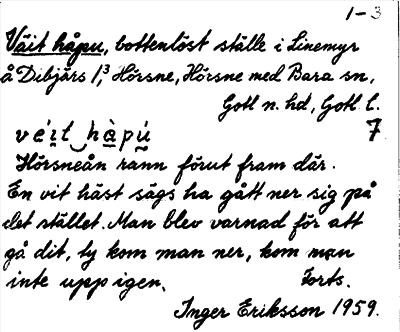 1-3
Väit håpu, bottenlöst ställe i Linemyr
å Dibjärs 1,3 Hörsne, Hörsne med Bara sn,
Gotl n. hd, Gotl. l.
véit hàpú 7
Hörsneån rann förut fram där.
En vit häst sägs ha gått ner sig på
det stället. Man blev varnad för att
gå dit, ty kom man ner, kom man
inte upp igen. Forts.
Inger Eriksson 1959.